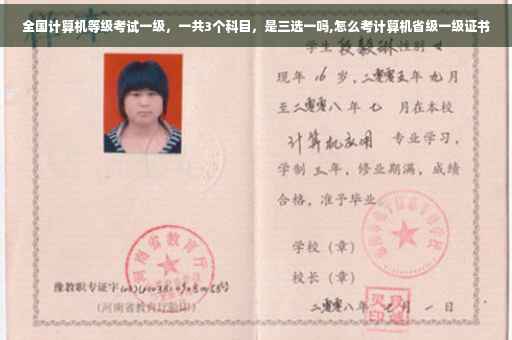 全国计算机等级考试一级，一共3个科目，是三选一吗,怎么考计算机省级一级证书
学生 段毅琳 性别 女
现年 16 岁，二零零五年 九月
至二零零八年 七 月在本校
计算机应用 专业学习，
学制 三 年，修业期满，成绩
合格，准予毕业
学校（章）
校长（章）
河南省教育厅
豫教职专证字
(河南省教育厅验印)
二零零八年 七 月 一 日